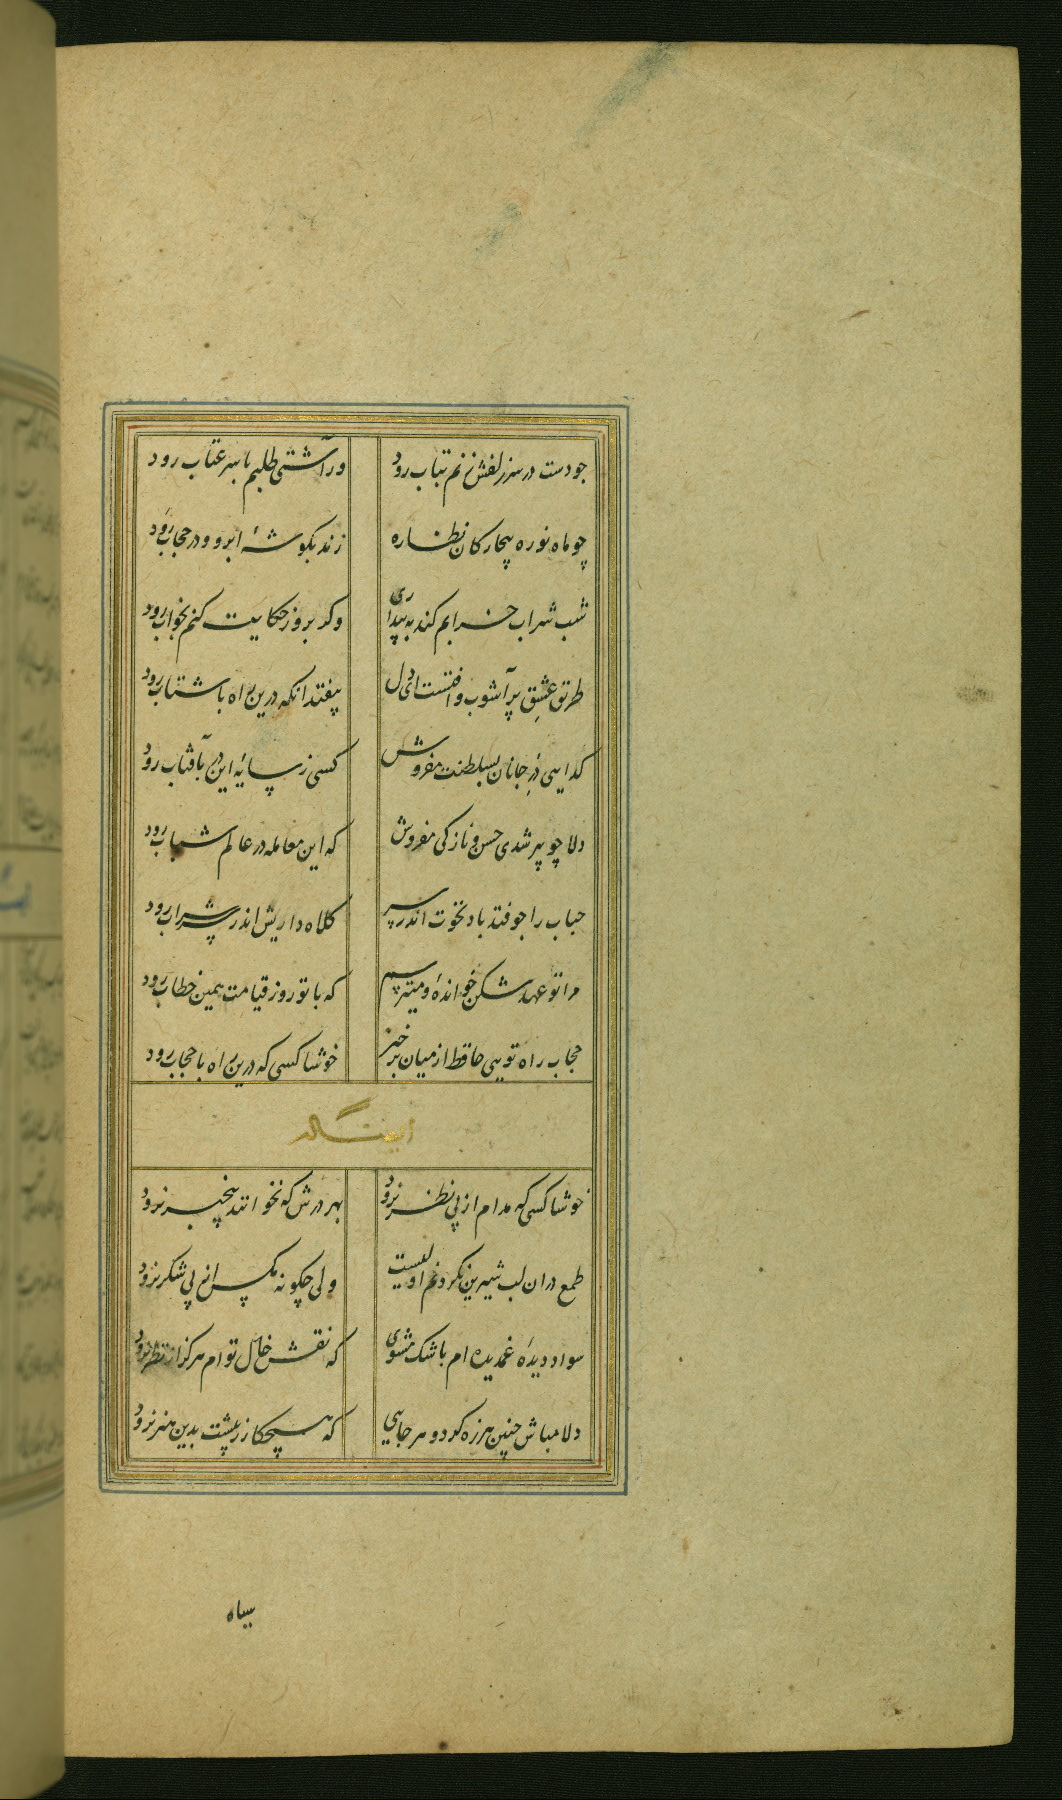 جو دست در سر زلفش زنم بتاب رود ور آشتی طلبم با سر عتاب رود
چو ماه نو ره بیچارکان نظاره زند بکوشهٔ ابرو و در حجاب رود
شب شراب خرابم کند به بیداری وکر بروز حکایت کنم بخواب رود
طریق عشق پر آشوب و افتست ای دل بیفتد انکه درین راه با شتاب رود
کدایی در جانان بسلطنت مفروش کسی ز سایهٔ این در بآفتاب رود
دلا چو پیر شدی حسن و نازکی مفروش که این معامله در عالم شباب رود
حباب را جو فتد باد نخوت اندر سر کلاه داریش اندر سر شراب رود
مرا تو عهد شکن خواندهٔ و میترسم که با تو روز قیامت همین خطاب رود
حجاب راه تویی حافظ از میان برخیز خوشا کسی که درین راه با حجاب رود
ایضا له
خوشا کسی که مدام از پی نظر نرود بهر درش که نخوانند بیخبر نرود
طمع دران لب شیرین نکردنم اولیست ولی چکونه مکس از پی شکر نرود
سواد دیدهٔ غمدیده ام باشک مشوی که نقش خال توام هرکز از نظر نرود
دلا مباش چنین هرزه کرد و هر جایی که هیچ کار ز پیشت بدین هنر نرود
سیاه